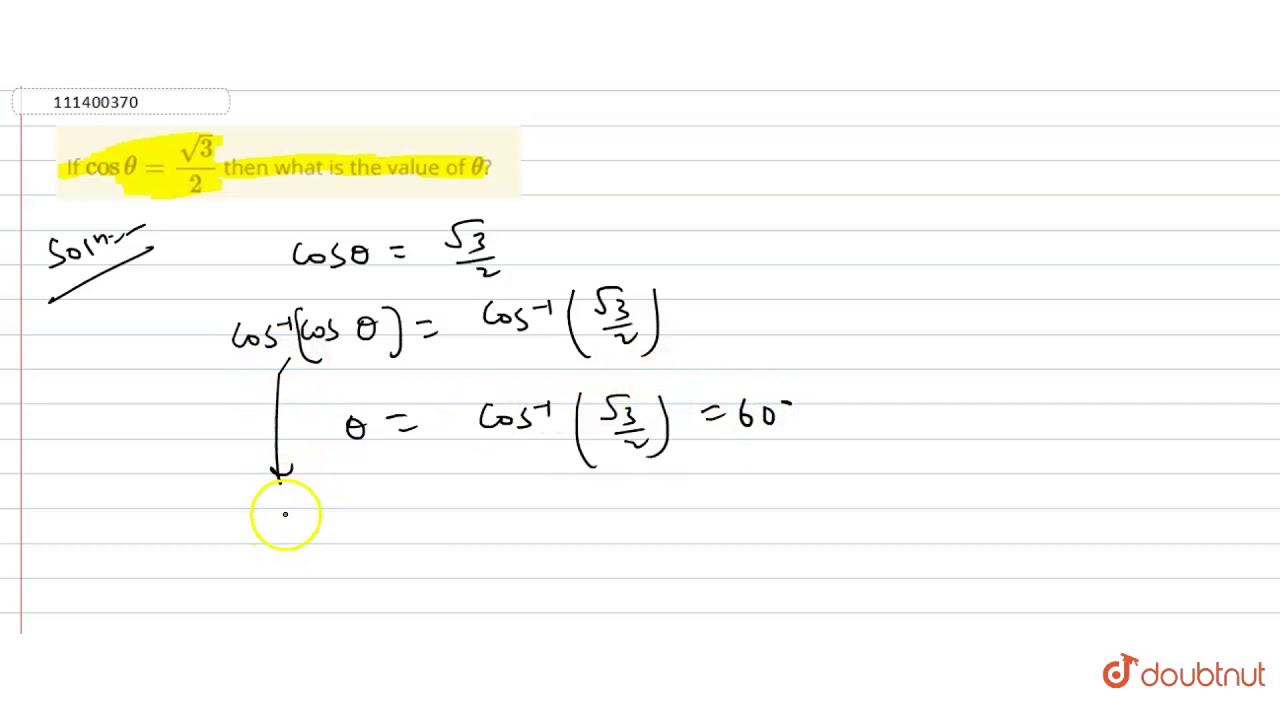 111400370
If cos θ = √3/2 then what is the value of θ?
Solⁿ:-
cos θ = √3/2
cos⁻¹(cos θ) = cos⁻¹(√3/2)
θ = cos⁻¹(√3/2) = 60°
doubtnut